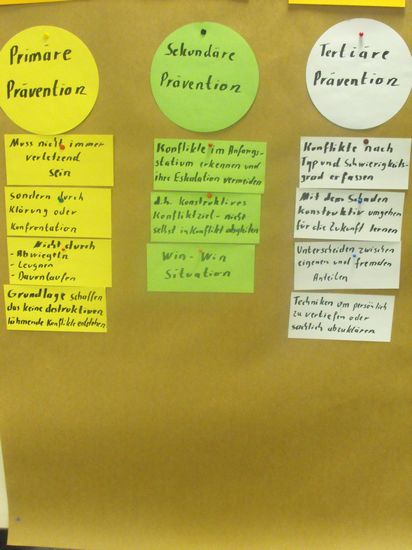 Primäre
Prävention
Muss nicht immer
verletzend
sein
sondern durch
Klärung oder
Konfrontation
Nicht durch
- Abwiegeln
- Leugnen
- Davonlaufen
Grundlage schaffen
das keine destruktiven
lähmende Konflikte entstehen
Sekundäre
Prävention
Konflikte im Anfangs-
stadium erkennen und
ihre Eskalation vermeiden
d.h. Konstruktives
Konfliktziel - nicht
selbst in Konflikt abgleiten
Win - Win
Situation
Tertiäre
Prävention
Konflikte nach
Typ und Schwierigkeits-
grad erfassen
Mit dem Schaden
Konstruktiv umgehen
für die Zukunft lernen
Unterscheiden zwischen
eigenen und fremden
Anteilen
Techniken um persönlich
zu vertiefen oder
sachlich abzuklären